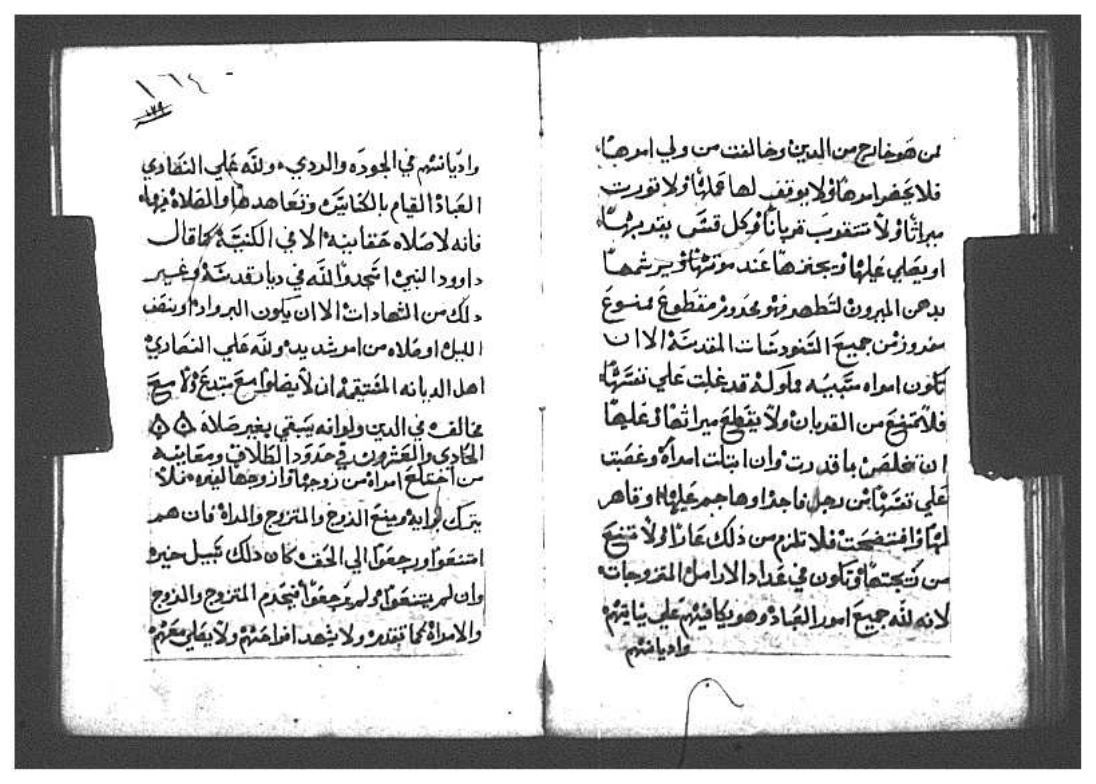 ممن هو خارج من الدين وخالفت من ولي امرها
فلا يحضر امرها ولا يوقف لها عملا ولا تورت
ميراثا ولا تتقرب قربانا وكل قسس يتقدم بها
او يصلي عليها ويجنزها عند موتها ويرشمها
بدهن الميرون لتطهر فهو محروم مقطوع ممنوع
مفروز من جميع التقودسات المقدسة الا ان
تكون امراه سبيه مملوكه قد غلت علي نفسها
فلا تمنع من القربان ولا يقطع ميراثها وعليها
ان تخلص بما قدرت وان ابتلت امراة وغصبت
علي نفسها من رجل فاجر او هاجم عليها وقاهر
لها وافتضحت فلا تلزم من ذلك عارا ولا تمنع
من وتكون في عداد الارامل المتزوجات
لانه لله جميع امور العباد وهو يكافيهم علي نياتهم
واديانتهم
١٦٤
واديانتهم في الجوده والردي ولله علي النصاري
العباد القيام بالكنايس وتعاهدها والصلاة فيها
فانه لا صلاه حقانيه الا في الكنيسة كما قال
داوود النبي اسجدوا لله في ديار قدسه وغير
دلك من الشهادات الا ان يكون البرواد او نصف
الليل او صلاه من امر شديد ولله علي النصاري
اهل الديانه المستقيمه ان لا يصلوا مع مبتدع ولا مع
مخالف في الدين ولو انه يبقي بغير صلاة
الحادي والعشرون في حدود الطلاق ومعانيه
من اختلع امراة من زوجها وازوجها لغيره فلا
يترك لرايه ويمنع الزوج والمتزوج والمراة فان هم
امتنعوا ورجعوا الي الحق كان دلك سبيل خيره
وان لم يمتنعوا ولم يرجعوا فيحرم المتزوج والزوج
والامراة كما تقدم ولا يشهد افراحهم ولا يصلي معهم